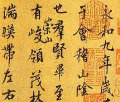 永和九年歲
于會稽山陰
也群賢畢至
有崇山峻領茂林
湍暎帶左右